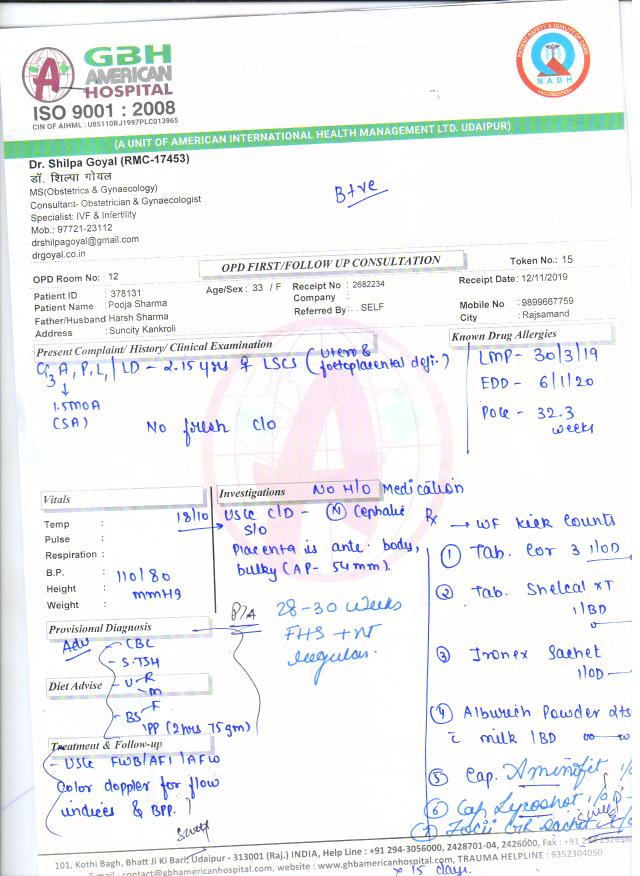 GBH
AMERICAN
HOSPITAL
ISO 9001 : 2008
CIN OF AIHML : U85110RJ1997PLC013965
PATIENT SAFETY & QUALITY OF CARE
NABH
ACCREDITED
(A UNIT OF AMERICAN INTERNATIONAL HEALTH MANAGEMENT LTD. UDAIPUR)
Dr. Shilpa Goyal (RMC-17453)
डॉ. शिल्पा गोयल
MS(Obstetrics & Gynaecology)
Consultant- Obstetrician & Gynaecologist
Specialist: IVF & Infertility
Mob.: 97721-23112
drshilpagoyal@gmail.com
drgoyal.co.in
B+ve
OPD FIRST/FOLLOW UP CONSULTATION
Token No.: 15
OPD Room No: 12
Patient ID : 378131
Age/Sex : 33 / F
Receipt No : 2682234
Receipt Date: 12/11/2019
Patient Name : Pooja Sharma
Company :
Mobile No : 9899667759
Father/Husband Harsh Sharma
Referred By : . SELF
City : Rajsamand
Address : Suncity Kankroli
Present Complaint/ History/ Clinical Examination
Known Drug Allergies
G3A1P1L1 / LD - 2.15 yrs LSCS (Utero &
foetoplacental defi.)
1.5 MOA
(SA)
No fresh C/O
LMP - 30/3/19
EDD - 6/1/20
POG - 32.3
weeks
Vitals
Investigations
NO H/O Medication
Temp :
Pulse :
Respiration :
B.P. : 110/80
Height : mmHg
Weight :
18/10
USG C/D - (N) Cephalic
S/O
Placenta is ante. body,
bulky (AP- 54mm).
P/A 28-30 weeks
FHS + NT
regular.
Rx → WF kick counts
① Tab. Cor 3 1/OD
② Tab. Shelcal XT
1/BD
③ Ironex Sachet
1/OD
④ Alburich Powder 2ts
c milk /BD
⑤ Cap. Aminofit
⑥ Cap Lycoshot 1/OD
⑦ Sachet
x 15 days.
Provisional Diagnosis
Adv
- CBC
- S.TSH
Diet Advise
- U-R
-M
- BS-F
PP (2hrs 75gm)
Treatment & Follow-up
- USG FWB/AFI/AFW
Color doppler for flow
indices & BPP.
101, Kothi Bagh, Bhatt Ji Ki Bari, Udaipur - 313001 (Raj.) INDIA, Help Line : +91 294-3056000, 2428701-04, 2426000, Fax : +91
E-mail : contact@gbhamericanhospital.com, website : www.gbhamericanhospital.com, TRAUMA HELPLINE : 9352304050